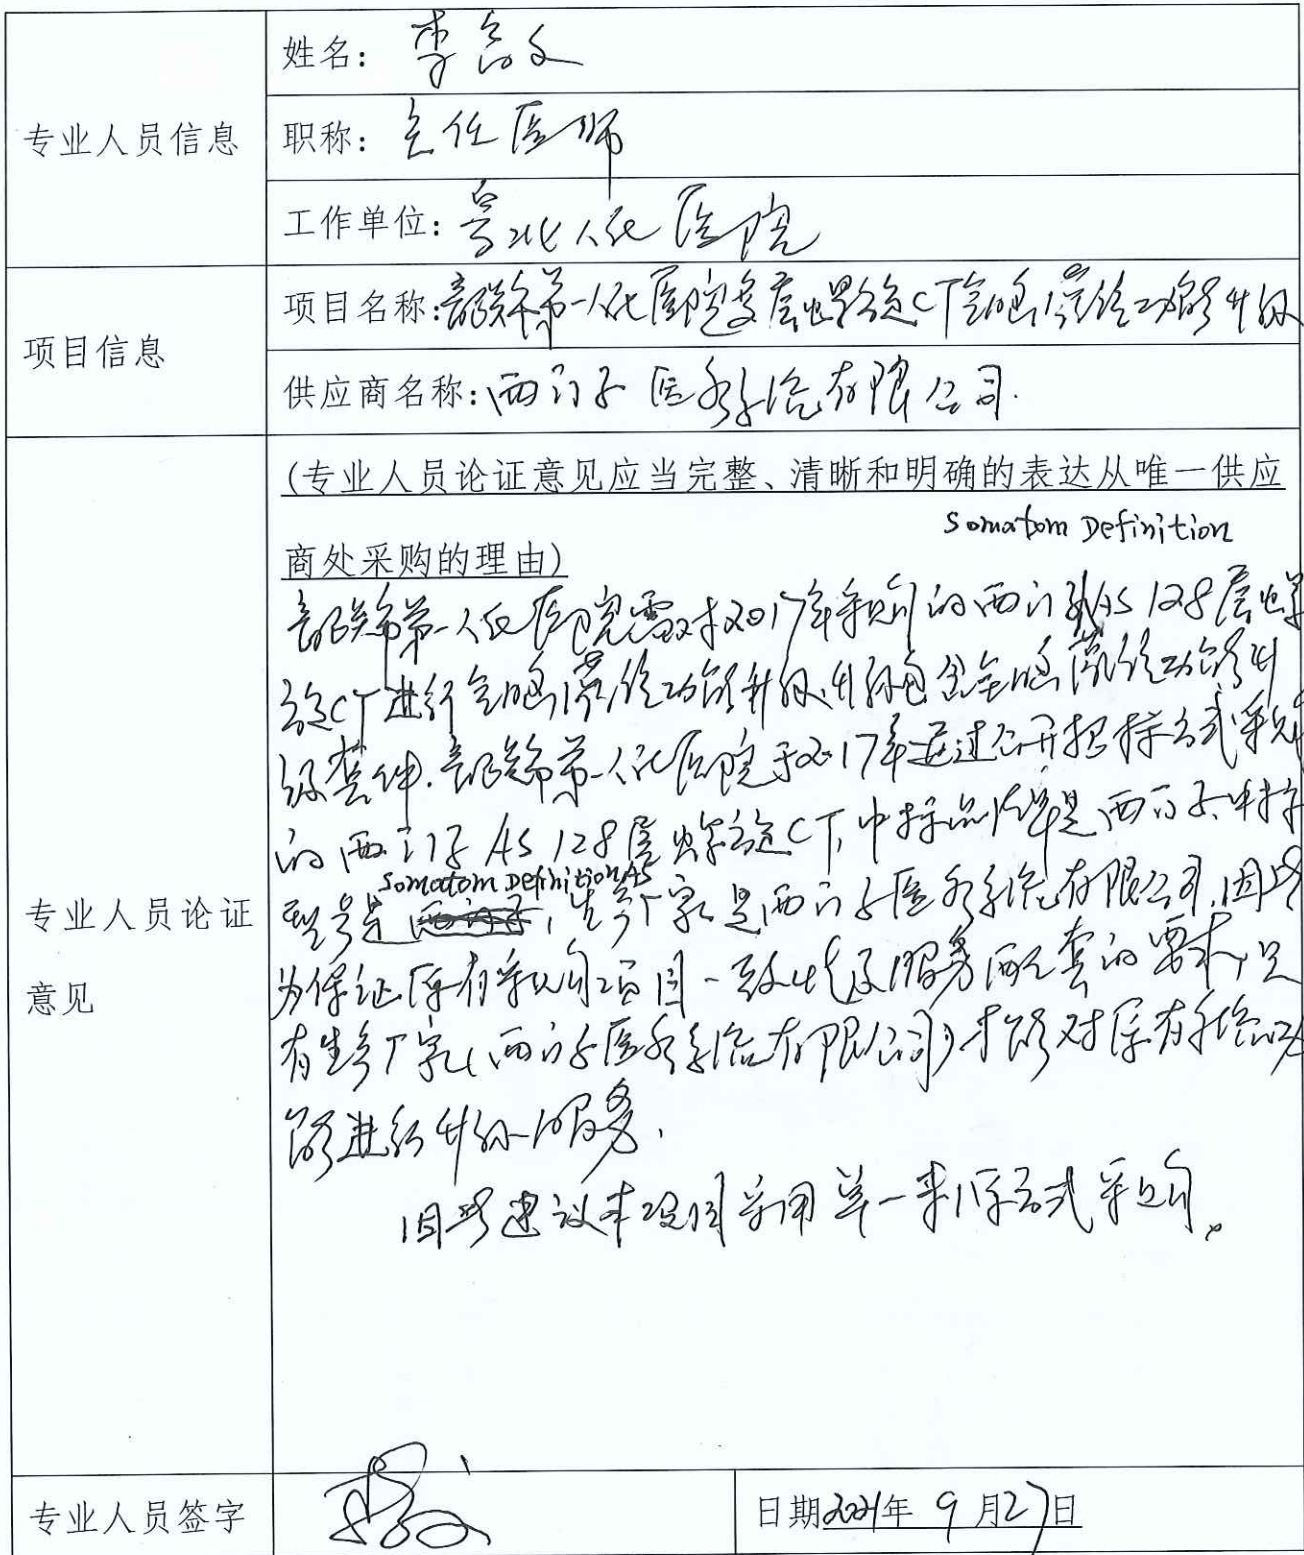 专业人员信息
姓名: 李文
职称: 主任医师
工作单位: 粤北人民医院
项目信息
项目名称: 韶关市第一人民医院多层螺旋CT全脑灌注功能升级
供应商名称: 西门子医疗系统有限公司.
专业人员论证
意见
(专业人员论证意见应当完整、清晰和明确的表达从唯一供应
商处采购的理由)
Somatom Definition
韶关市第一人民医院需对2017年采购的西门子AS 128层螺
旋CT进行全脑灌注功能升级,升级包含全脑灌注功能升
级套件.韶关市第一人民医院于2017年通过公开招标方式采购
的西门子AS 128层螺旋CT,中标品牌是西门子,中标
Somatom Definition AS
型号是,生产厂家是西门子医疗系统有限公司,因此
为保证原有采购项目一致性及服务配套的要求,只
有生产厂家(西门子医疗系统有限公司)才能对原有功
能进行升级服务.
因此建议本项目采用单一来源方式采购。
专业人员签字
日期2021年9月27日